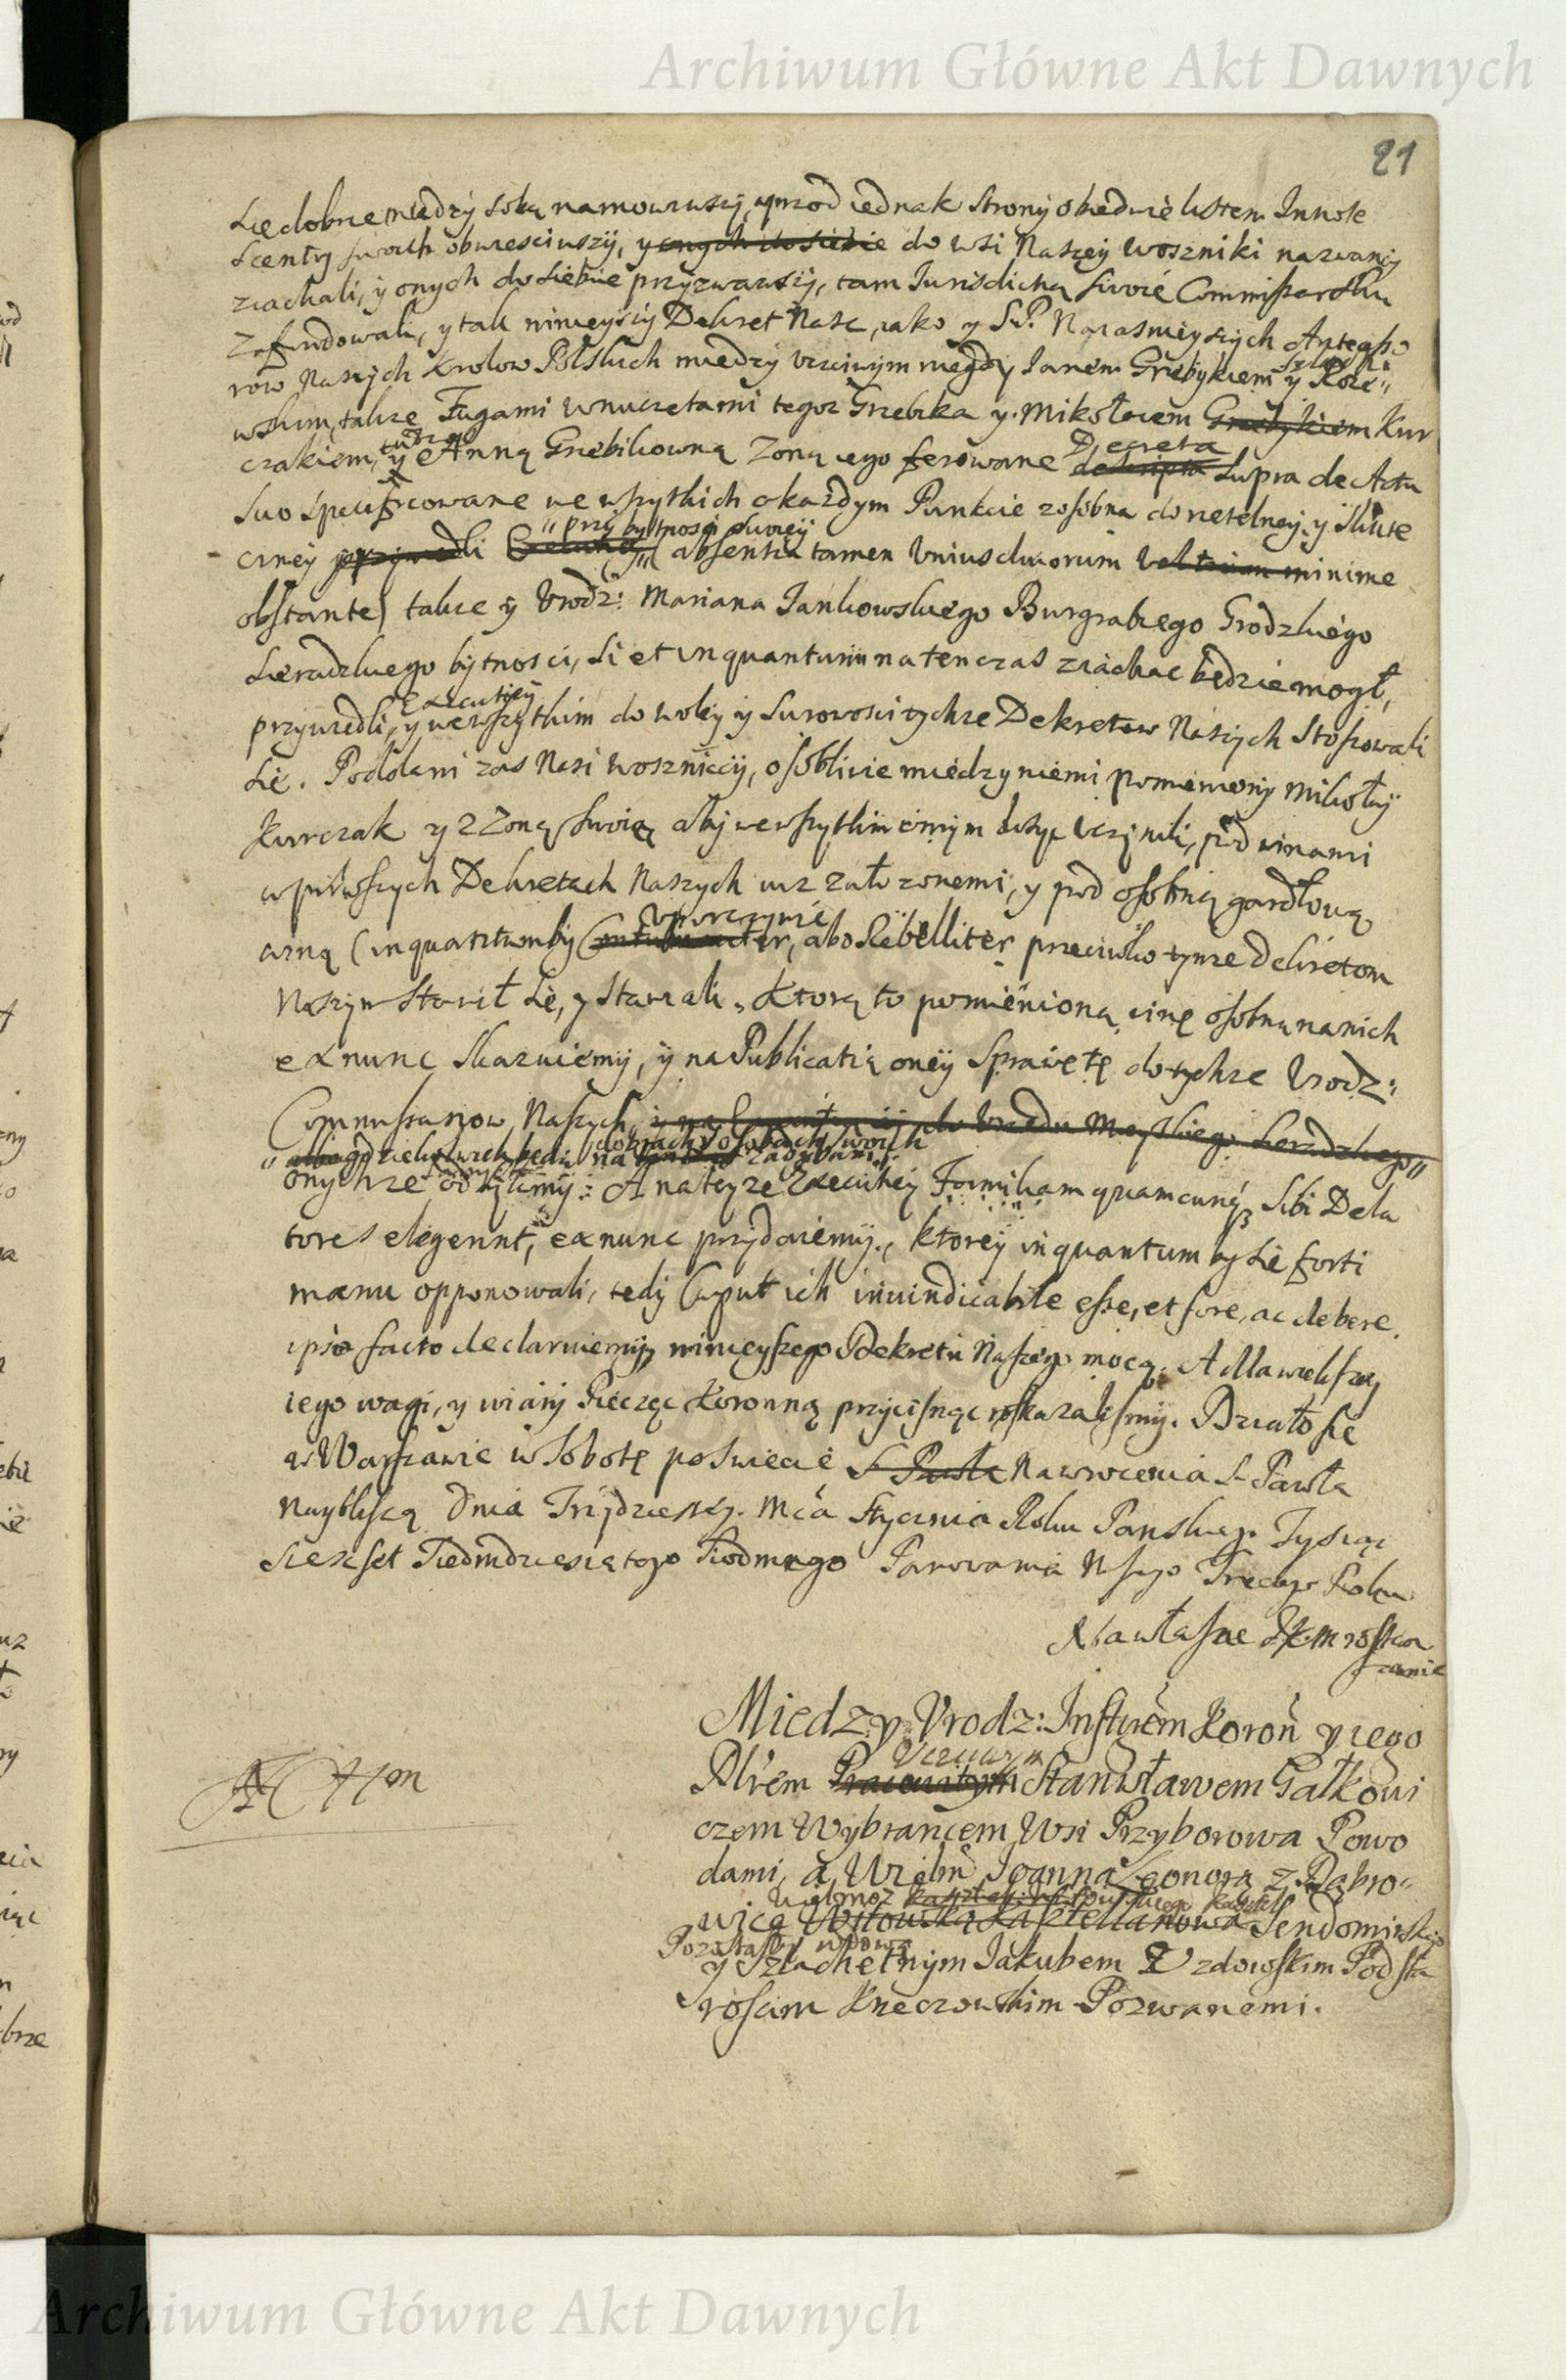 Archiwum Główne Akt Dawnych
21
Się dobrze miedzy sobą namowiwszy, wprzod iednak Strony obiedwie listem Innote
scenty swoich obwiesciwszy, y onych do siebie do wsi Naszey Woszniki nazwaney
ziachali, y onych do siebie przyzwawszy, tam Iurisdictią swoię Commissarską
Zafundowali, y tak ninieyszy Dekret Nasz, iako y S.P. Naiasnieyszych Antecesso
row Naszych Krolow Polskich miedzy Vczciwym niegdy Ianem Grzebykiem y
wskim, także Fugami Wnuczętami tegoz Grzebka y Mikołaiem Grzebykiem Kur
czakiem, tudzież y Anną Grzebikowną Zoną iego ferowane Decreta supra de Actu
suo specificowane we wszytkich o kazdym Punkcie zosobna do rzetelney y skute
czney przywiedli przy bytnosci swoiey absentia tamen Vnius duorum vel trium minime
obstante) także y Vrodz: Mariana Iankowskiego Burgrabiego Grodzkiego
Sieradzkiego bytnosci, si et inquantum na tenczas ziachac będzie mogł,
Executiey
przywiedli, y we wszytkim do woley y surowosci tychze Dekretow Naszych stosowali
się. Poddani zas Nasi Wosznicey, osobliwie miedzy niemi pomieniony Mikołay
Kurczak y z Zoną swoią aby we wszytkim onym dosyc Vczynili, pod winami
w pierwszych Dekretach Naszych iuz załozonemi, y pod osobną gardłową
Vporczywie
winą (inquantumby abo Rebelliter przeciwko tymze Dekretom
Naszym stawił się, y stawiali. Ktorą to pomienioną winę osobną na nich
ex nunc skazuiemy, y na Publicatią oney Sprawę tę do tychze Vrodz:
Commissarzow Naszych, y na do Vrzędu Sieradzkiego
gdziekolwiek będą na dobrach y osobach swoich
onychze odsyłamy: A na teyze Executiey Familiam quamcunq3 sibi Dela
tores elegerint, ex nunc przydaiemy, ktorey inquantum by się forti
manu opponowali, tedy Caput ich inuindicabile esse, et fore, ac debere
ipso facto declaruiemy, ninieyszego Dekretu Naszego mocą. A dla wiekszey
iego wagi, y wiary Pieczęc Koronną przycisnąc roskazalismy. Działo się
w Warszawie w Sobotę po swięcie S Pawła Nawrocenia S. Pawła
naybliszą Dnia Trzydziestego Mca Stycznia Roku Panskiego Tysiąc
Szescset Siedmdziesiątego Siodmego Panowania Nszego Trzeciego Roku
Na własne JKM roska
zanie
Miedzy Vrodz: Instrem Koron y iego
Vczciwym
Plrem Pracowitym Stanisławem Gałkowi
czem Wybrancem Wsi Przyborowa Powo
dami, a Wielbn Ioanną Leonorą z Dąbro-
Wielmoz
wice Witowską Kasztellanową Sendomirskiego
Pozostałą wdową
y Szlachetnym Iakubem Vzdowskim Podsta
roscim Kneczowskim Pozwanemi.
Archiwum Główne Akt Dawnych